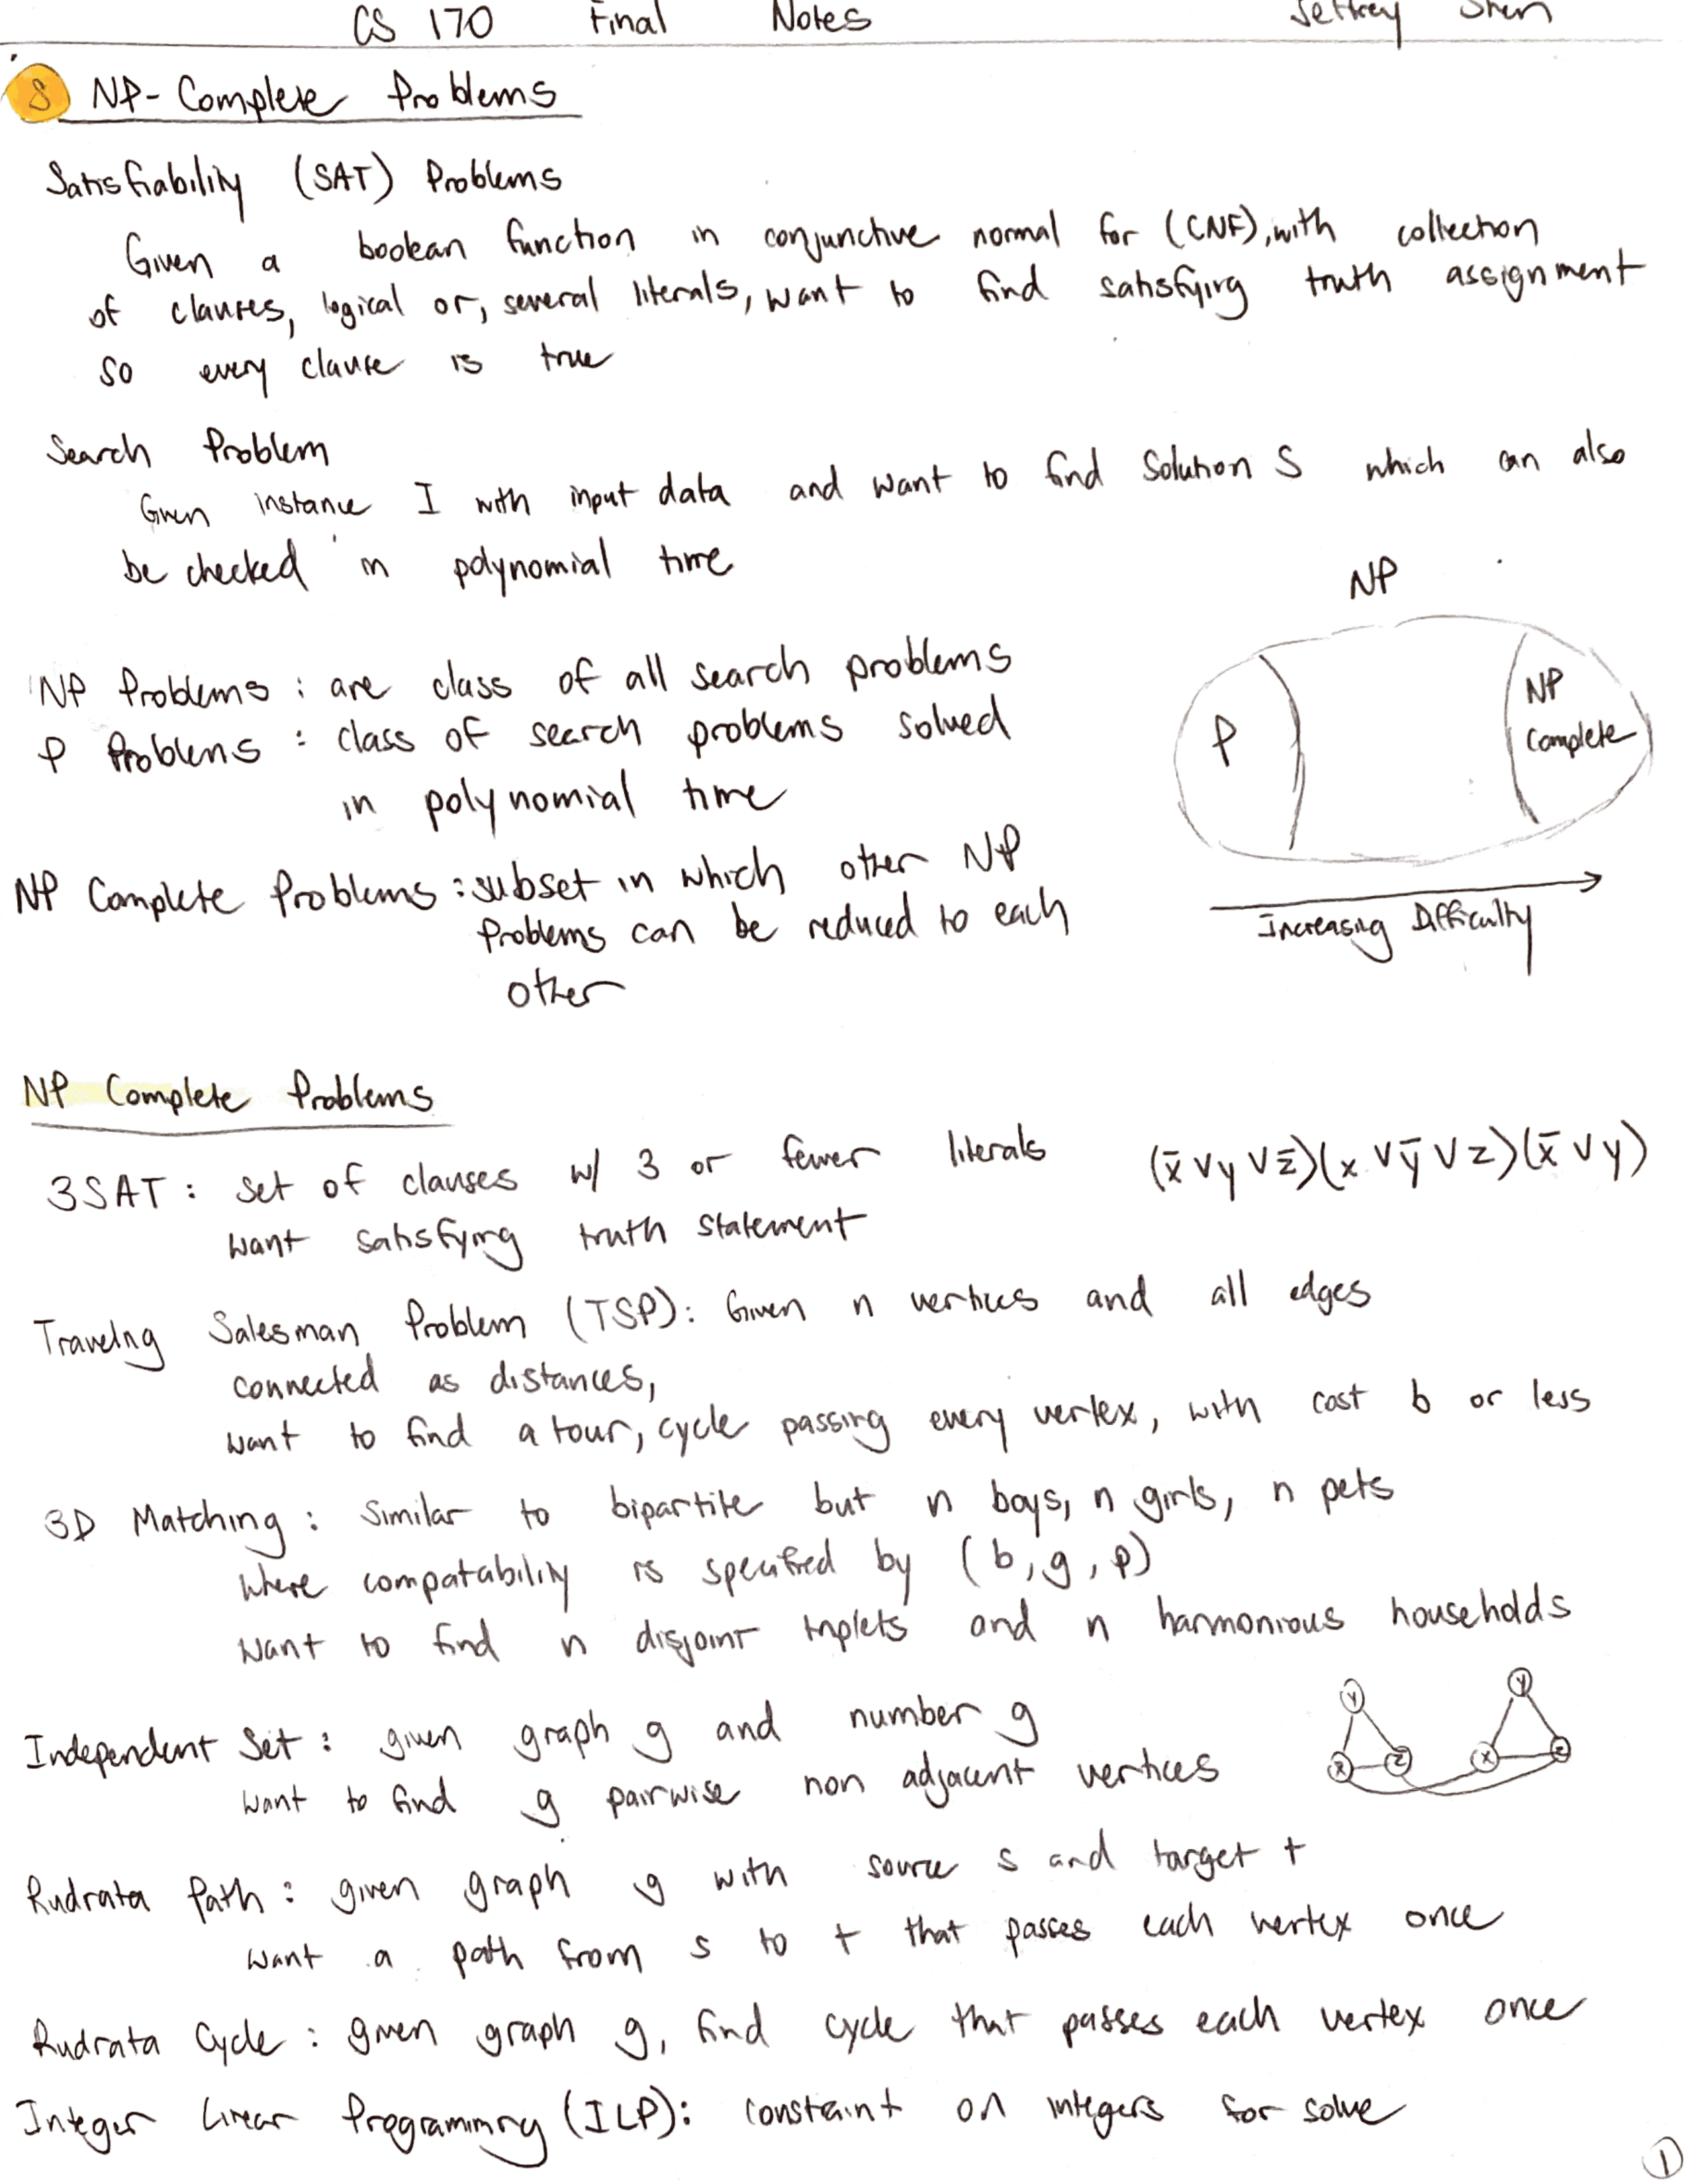 CS 170 Final Notes Jeffrey Shen
8 NP-Complete Problems
Satisfiability (SAT) Problems
Given a boolean function in conjunctive normal for (CNF), with collection
of clauses, logical or, several literals, want to find satisfying truth assignment
so every clause is true
Search Problem
Given instance I with input data and want to find solution S which can also
be checked in polynomial time
NP
NP Problems : are class of all search problems
P Problems : class of search problems solved
in polynomial time
P
NP
Complete
NP Complete Problems : subset in which other NP
Problems can be reduced to each
other
Increasing Difficulty
NP Complete Problems
3SAT : set of clauses w/ 3 or fewer literals (x̄ ∨ y ∨ z̄)(x ∨ ȳ ∨ z)(x̄ ∨ y)
want satisfying truth statement
Traveling Salesman Problem (TSP): Given n vertices and all edges
connected as distances,
want to find a tour, cycle passing every vertex, with cost b or less
3D Matching : Similar to bipartite but n boys, n girls, n pets
where compatability is specified by (b, g, p)
want to find n disjoint triplets and n harmonious households
Independent Set : given graph g and number g
want to find g pairwise non adjacent vertices
y y
x z x z
Rudrata Path : given graph g with source s and target t
want a path from s to t that passes each vertex once
Rudrata Cycle : given graph g, find cycle that passes each vertex once
Integer Linear Programming (ILP): constraint on integers for solve
1